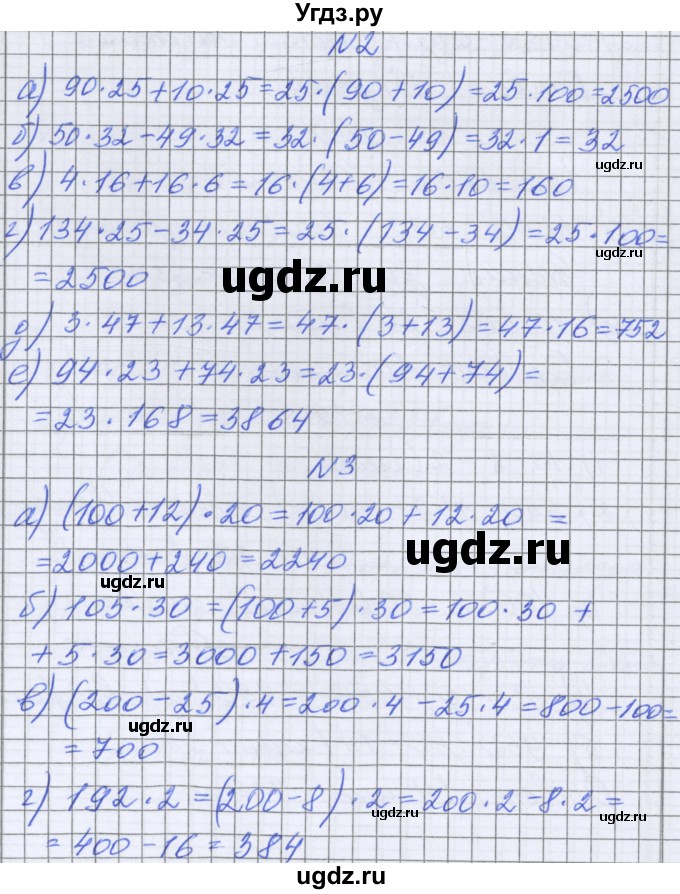 Угдз.ру
N2
а) 90·25+10·25=25·(90+10)=25·100=2500
б) 50·32-49·32=32·(50-49)=32·1=32
ugdz.ru
в) 4·16+16·6=16·(4+6)=16·10=160
г) 134·25-34·25=25·(134-34)=25·100=
ugdz.ru
=2500
ugdz.ru
д) 3·47+13·47=47·(3+13)=47·16=752
е) 94·23+74·23=23·(94+74)=
=23·168=3864
N3
а) (100+12)·20=100·20+12·20 =
ugdz.ru
=2000+240=2240
ugdz.ru
б) 105·30=(100+5)·30=100·30 +
+5·30=3000+150=3150
в) (200-25)·4=200·4-25·4=800-100=
ugdz.ru
=700
г) 192·2=(200-8)·2=200·2-8·2=
ugdz.ru
ugdz.ru
=400-16=384
ugdz.ru